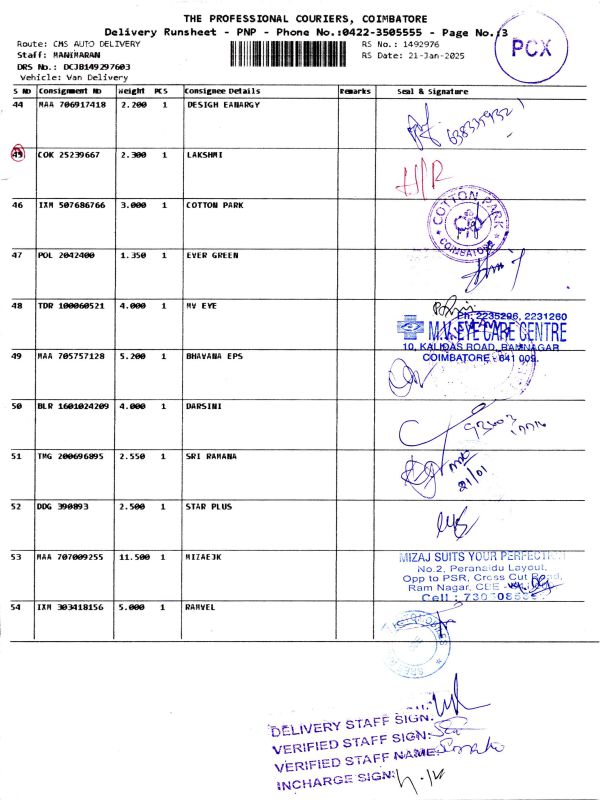 THE PROFESSIONAL COURIERS, COIMBATORE
Delivery Runsheet - PNP - Phone No.:0422-3505555 - Page No.:3
Route: CMS AUTO DELIVERY RS No.: 1492976
Staff: MANIMARAN RS Date: 21-Jan-2025
DRS No.: DCJB149297603
Vehicle: Van Delivery
PCX
S No Consignment No Weight PCS Consignee Details Remarks Seal & Signature
44 MAA 706917418 2.200 1 DESIGH EANARGY
45 COK 25239667 2.300 1 LAKSHMI
H/R
46 IXM 507686766 3.000 1 COTTON PARK
COTTON PARK
COIMBATORE
47 POL 2042400 1.350 1 EVER GREEN
48 TDR 100060521 4.000 1 MV EYE
Ph: 2235296, 2231260
M.V. EYE CARE CENTRE
10, KALIDAS ROAD, RAMNAGAR
COIMBATORE - 641 009.
49 MAA 705757128 5.200 1 BHAVANA EPS
50 BLR 1601024209 4.000 1 DARSINI
51 TMG 200696895 2.550 1 SRI RAMANA
21/01
52 DDG 390893 2.500 1 STAR PLUS
53 MAA 707009255 11.500 1 MIZAEJK
MIZAJ SUITS YOUR PERFECTION
No.2, Peranaidu Layout,
Opp to PSR, Cross Cut Road,
Ram Nagar, CBE -
Cell :
54 IXM 303418156 5.000 1 RAMVEL
DELIVERY STAFF SIGN:
VERIFIED STAFF SIGN:
VERIFIED STAFF NAME:
INCHARGE SIGN: